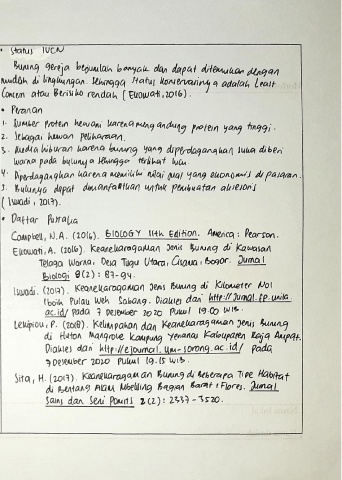 • Status IUCN
Burung gereja berjumlah banyak dan dapat ditemukan dengan
mudah di lingkungan. Sehingga status konservasinya adalah Least
Concern atau Berisiko rendah (Ekowati, 2016).
• Peranan
1. Sumber protein hewani karena mengandung protein yang tinggi.
2. Sebagai hewan peliharaan.
3. Media hiburan karena burung yang diperdagangkan suka diberi
warna pada bulunya sehingga terlihat lucu
4. Diperdagangkan karena memiliki nilai jual yang ekonomis di pasaran.
5. Bulunya dapat dimanfaatkan untuk pembuatan aksesoris
(Iswadi, 2017).
• Daftar Pustaka
Campbell, N.A. (2016). BIOLOGY 11th Edition. America: Pearson.
Ekowati, A. (2016). Keanekaragaman Jenis Burung di Kawasan
Telaga Warna, Desa Tugu Utara, Cisarua, Bogor. Jurnal
Biologi 9(2): 87-94.
Iswadi. (2017). Keanekaragaman Jenis Burung di Kilometer Nol
Iboih Pulau Weh Sabang. Diakses dari
ac.id/ pada 7 Desember 2020 Pukul 19.00 WIB.
P. (2018). Kelimpahan dan Keanekaragaman Jenis Burung
di Hutan Mangrove Kampung Yenanas Kabupaten Raja Ampat.
Diakses dari http://ejournal.um-sorong.ac.id/ pada
7 Desember 2020 Pukul 19.15 WIB.
Sita, H. (2017). Keanekaragaman Burung di Beberapa Tipe Habitat
di Bentang Alam Mbeliling Bagian Barat, Flores. Jurnal
Sains dan Seni Pomits 2(2): 2337-3520.